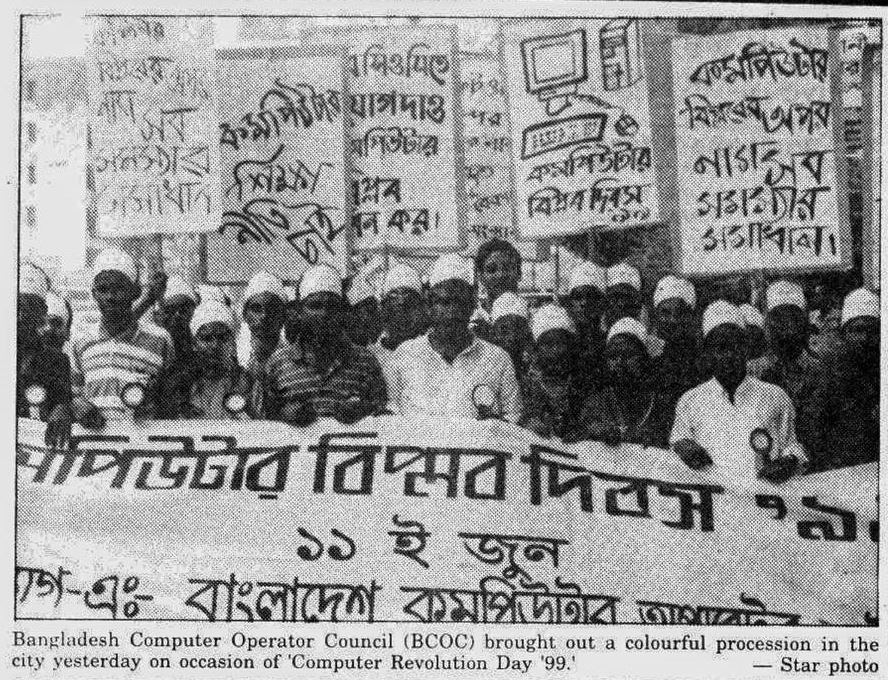 সব
সমস্যার
সমাধান
কমপিউটার
শিক্ষা
নীতি চাই
যাগদাও
মপিউটার
প্লব
ন কর।
কমপিউটার
বিপ্লব দিবস ৯৯
কমপিউটার
বিপ্লবের অপর
নাম সব
সমস্যার
সমাধান।
মপিউটার বিপ্লব দিবস '৯
১১ ই জুন
াগ-এঃ- বাংলাদেশ কমপিউটার অপারেটর
Bangladesh Computer Operator Council (BCOC) brought out a colourful procession in the
city yesterday on occasion of 'Computer Revolution Day '99.' — Star photo